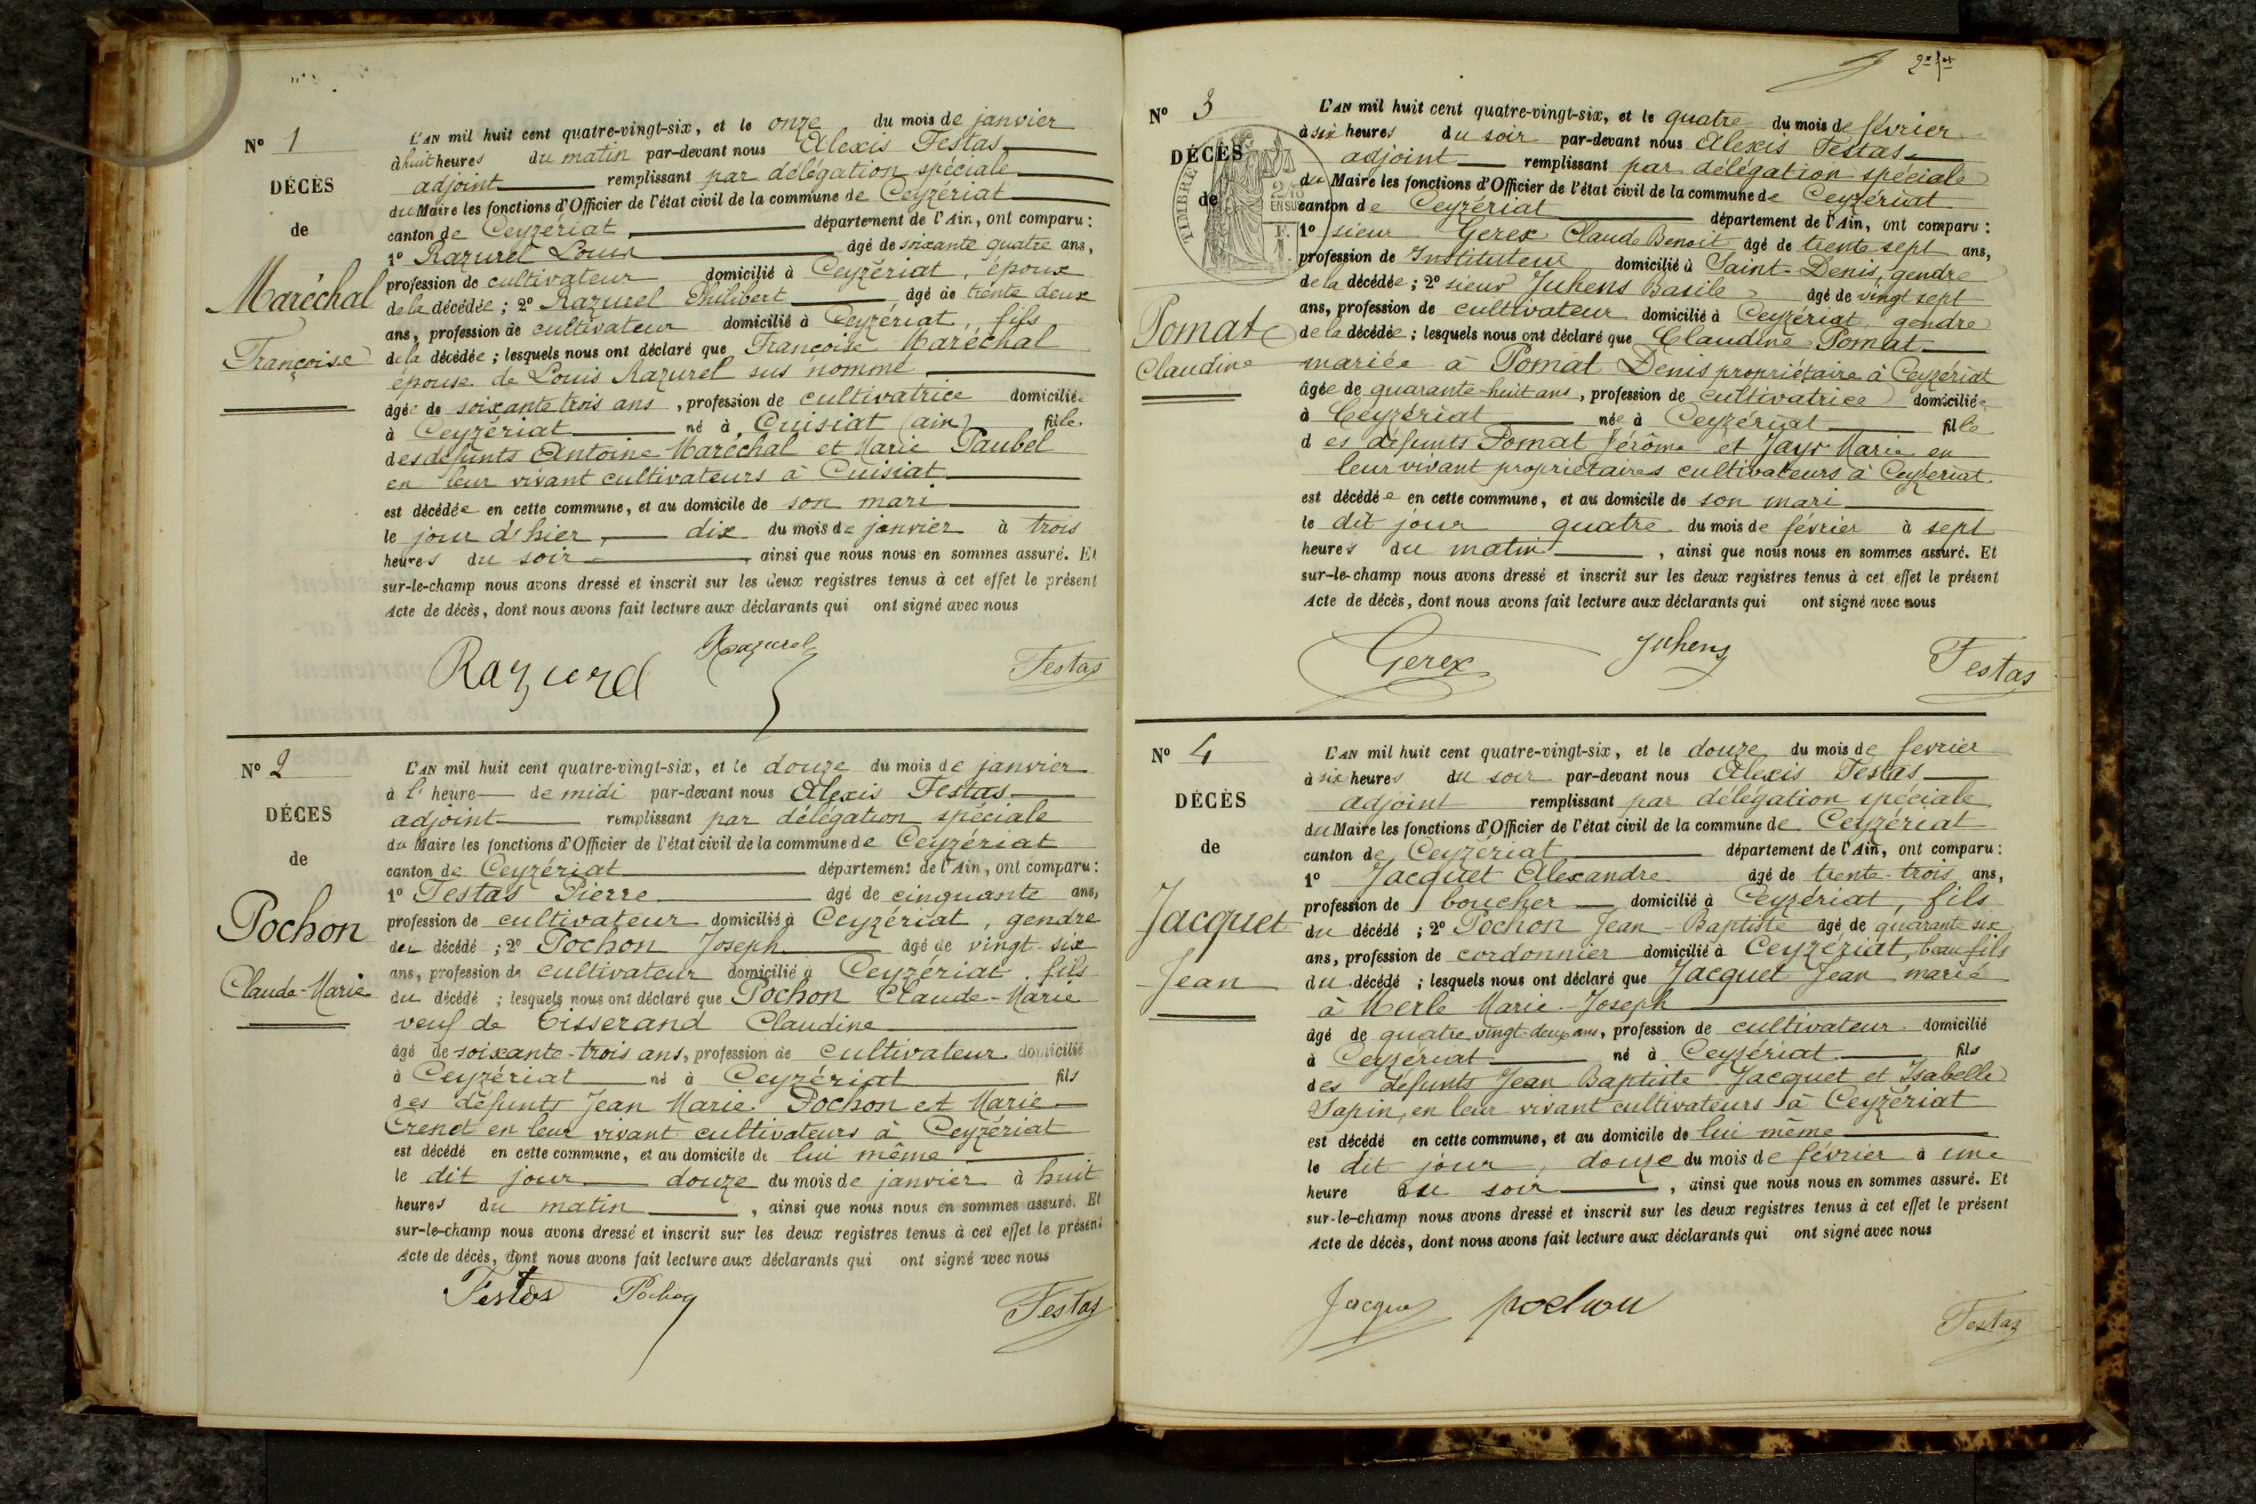 Nº 1
DÉCÈS
de
Maréchal
Françoise
L'AN mil huit cent quatre-vingt-six, et le onze du mois de janvier
à huit heures du matin par-devant nous Alexis Festas
adjoint remplissant par délégation spéciale
du Maire les fonctions d'Officier de l'état civil de la commune de Ceyzériat
canton de Ceyzériat département de l'Ain, ont comparu :
1º Razurel Louis âgé de soixante quatre ans,
profession de cultivateur domicilié à Ceyzériat, époux
de la décédée ; 2º Razurel Philibert âgé de trente deux
ans, profession de cultivateur domicilié à Ceyzériat, fils
de la décédée ; lesquels nous ont déclaré que Françoise Maréchal
épouse de Louis Razurel sus nommé
âgée de soixante trois ans, profession de cultivatrice domiciliée
à Ceyzériat né à Cuisiat (ain) fille
des défunts Antoine Maréchal et Marie Paubel
en leur vivant cultivateurs à Cuisiat
est décédée en cette commune, et au domicile de son mari
le jour d'hier, dix du mois de janvier à trois
heures du soir, ainsi que nous nous en sommes assuré. Et
sur-le-champ nous avons dressé et inscrit sur les deux registres tenus à cet effet le présent
Acte de décès, dont nous avons fait lecture aux déclarants qui ont signé avec nous
Razurel Razurel Festas
Nº 2
DÉCES
de
Pochon
Claude-Marie
L'AN mil huit cent quatre-vingt-six, et le douze du mois de janvier
à l' heure de midi par-devant nous Alexis Festas
adjoint remplissant par délégation spéciale
du Maire les fonctions d'Officier de l'état civil de la commune de Ceyzériat
canton de Ceyzériat département de l'Ain, ont comparu :
1º Festas Pierre âgé de cinquante ans,
profession de cultivateur domicilié à Ceyzériat, gendre
du décédé ; 2º Pochon Joseph âgé de vingt-six
ans, profession de cultivateur domicilié à Ceyzériat, fils
du décédé ; lesquels nous ont déclaré que Pochon Claude-Marie
veuf de Tisserand Claudine
âgé de soixante-trois ans, profession de cultivateur domicilié
à Ceyzériat né à Ceyzériat fils
des défunts Jean Marie Pochon et Marie
Crenot en leur vivant cultivateurs à Ceyzériat
est décédé en cette commune, et au domicile de lui même
le dit jour douze du mois de janvier à huit
heures du matin, ainsi que nous nous en sommes assuré. Et
sur-le-champ nous avons dressé et inscrit sur les deux registres tenus à cet effet le présent
Acte de décès, dont nous avons fait lecture aux déclarants qui ont signé avec nous
Festas Pochon Festas
Nº 3
DÉCÈS
de
Pomat
Claudine
L'AN mil huit cent quatre-vingt-six, et le quatre du mois de février
à six heures du soir par-devant nous Alexis Festas
adjoint remplissant par délégation spéciale
du Maire les fonctions d'Officier de l'état civil de la commune de Ceyzériat
canton de Ceyzériat département de l'Ain, ont comparu :
1º sieur Gerex Claude Benoit âgé de trente sept ans,
profession de Instituteur domicilié à Saint-Denis, gendre
de la décédée ; 2º sieur Juhens Basile âgé de vingt sept
ans, profession de cultivateur domicilié à Ceyzériat, gendre
de la décédée ; lesquels nous ont déclaré que Claudine Pomat
mariée à Pomat Denis propriétaire à Ceyzériat
âgée de quarante-huit ans, profession de cultivatrice domiciliée
à Ceyzériat née à Ceyzériat fille
des défunts Pomat Jérôme et Jayr Marie en
leur vivant propriétaires cultivateurs à Ceyzériat
est décédée en cette commune, et au domicile de son mari
le dit jour quatre du mois de février à sept
heures du matin, ainsi que nous nous en sommes assuré. Et
sur-le-champ nous avons dressé et inscrit sur les deux registres tenus à cet effet le présent
Acte de décès, dont nous avons fait lecture aux déclarants qui ont signé avec nous
Gerex Juhens Festas
Nº 4
DÉCÈS
de
Jacquet
Jean
L'AN mil huit cent quatre-vingt-six, et le douze du mois de fevrier
à six heures du soir par-devant nous Alexis Festas
adjoint remplissant par délégation spéciale
du Maire les fonctions d'Officier de l'état civil de la commune de Ceyzériat
canton de Ceyzériat département de l'Ain, ont comparu :
1º Jacquet Alexandre âgé de trente-trois ans,
profession de boucher domicilié à Ceyzériat, fils
du décédé ; 2º Pochon Jean-Baptiste âgé de quarante six
ans, profession de cordonnier domicilié à Ceyzériat, beau fils
du décédé ; lesquels nous ont déclaré que Jacquet Jean marié
à Merle Marie-Joseph
âgé de quatre vingt-deux ans, profession de cultivateur domicilié
à Ceyzériat né à Ceyzériat fils
des défunts Jean Baptiste Jacquet et Isabelle
Sapin, en leur vivant cultivateurs à Ceyzériat
est décédé en cette commune, et au domicile de lui même
le dit jour, douze du mois de février à une
heure du soir, ainsi que nous nous en sommes assuré. Et
sur-le-champ nous avons dressé et inscrit sur les deux registres tenus à cet effet le présent
Acte de décès, dont nous avons fait lecture aux déclarants qui ont signé avec nous
Jacquet pochon Festas